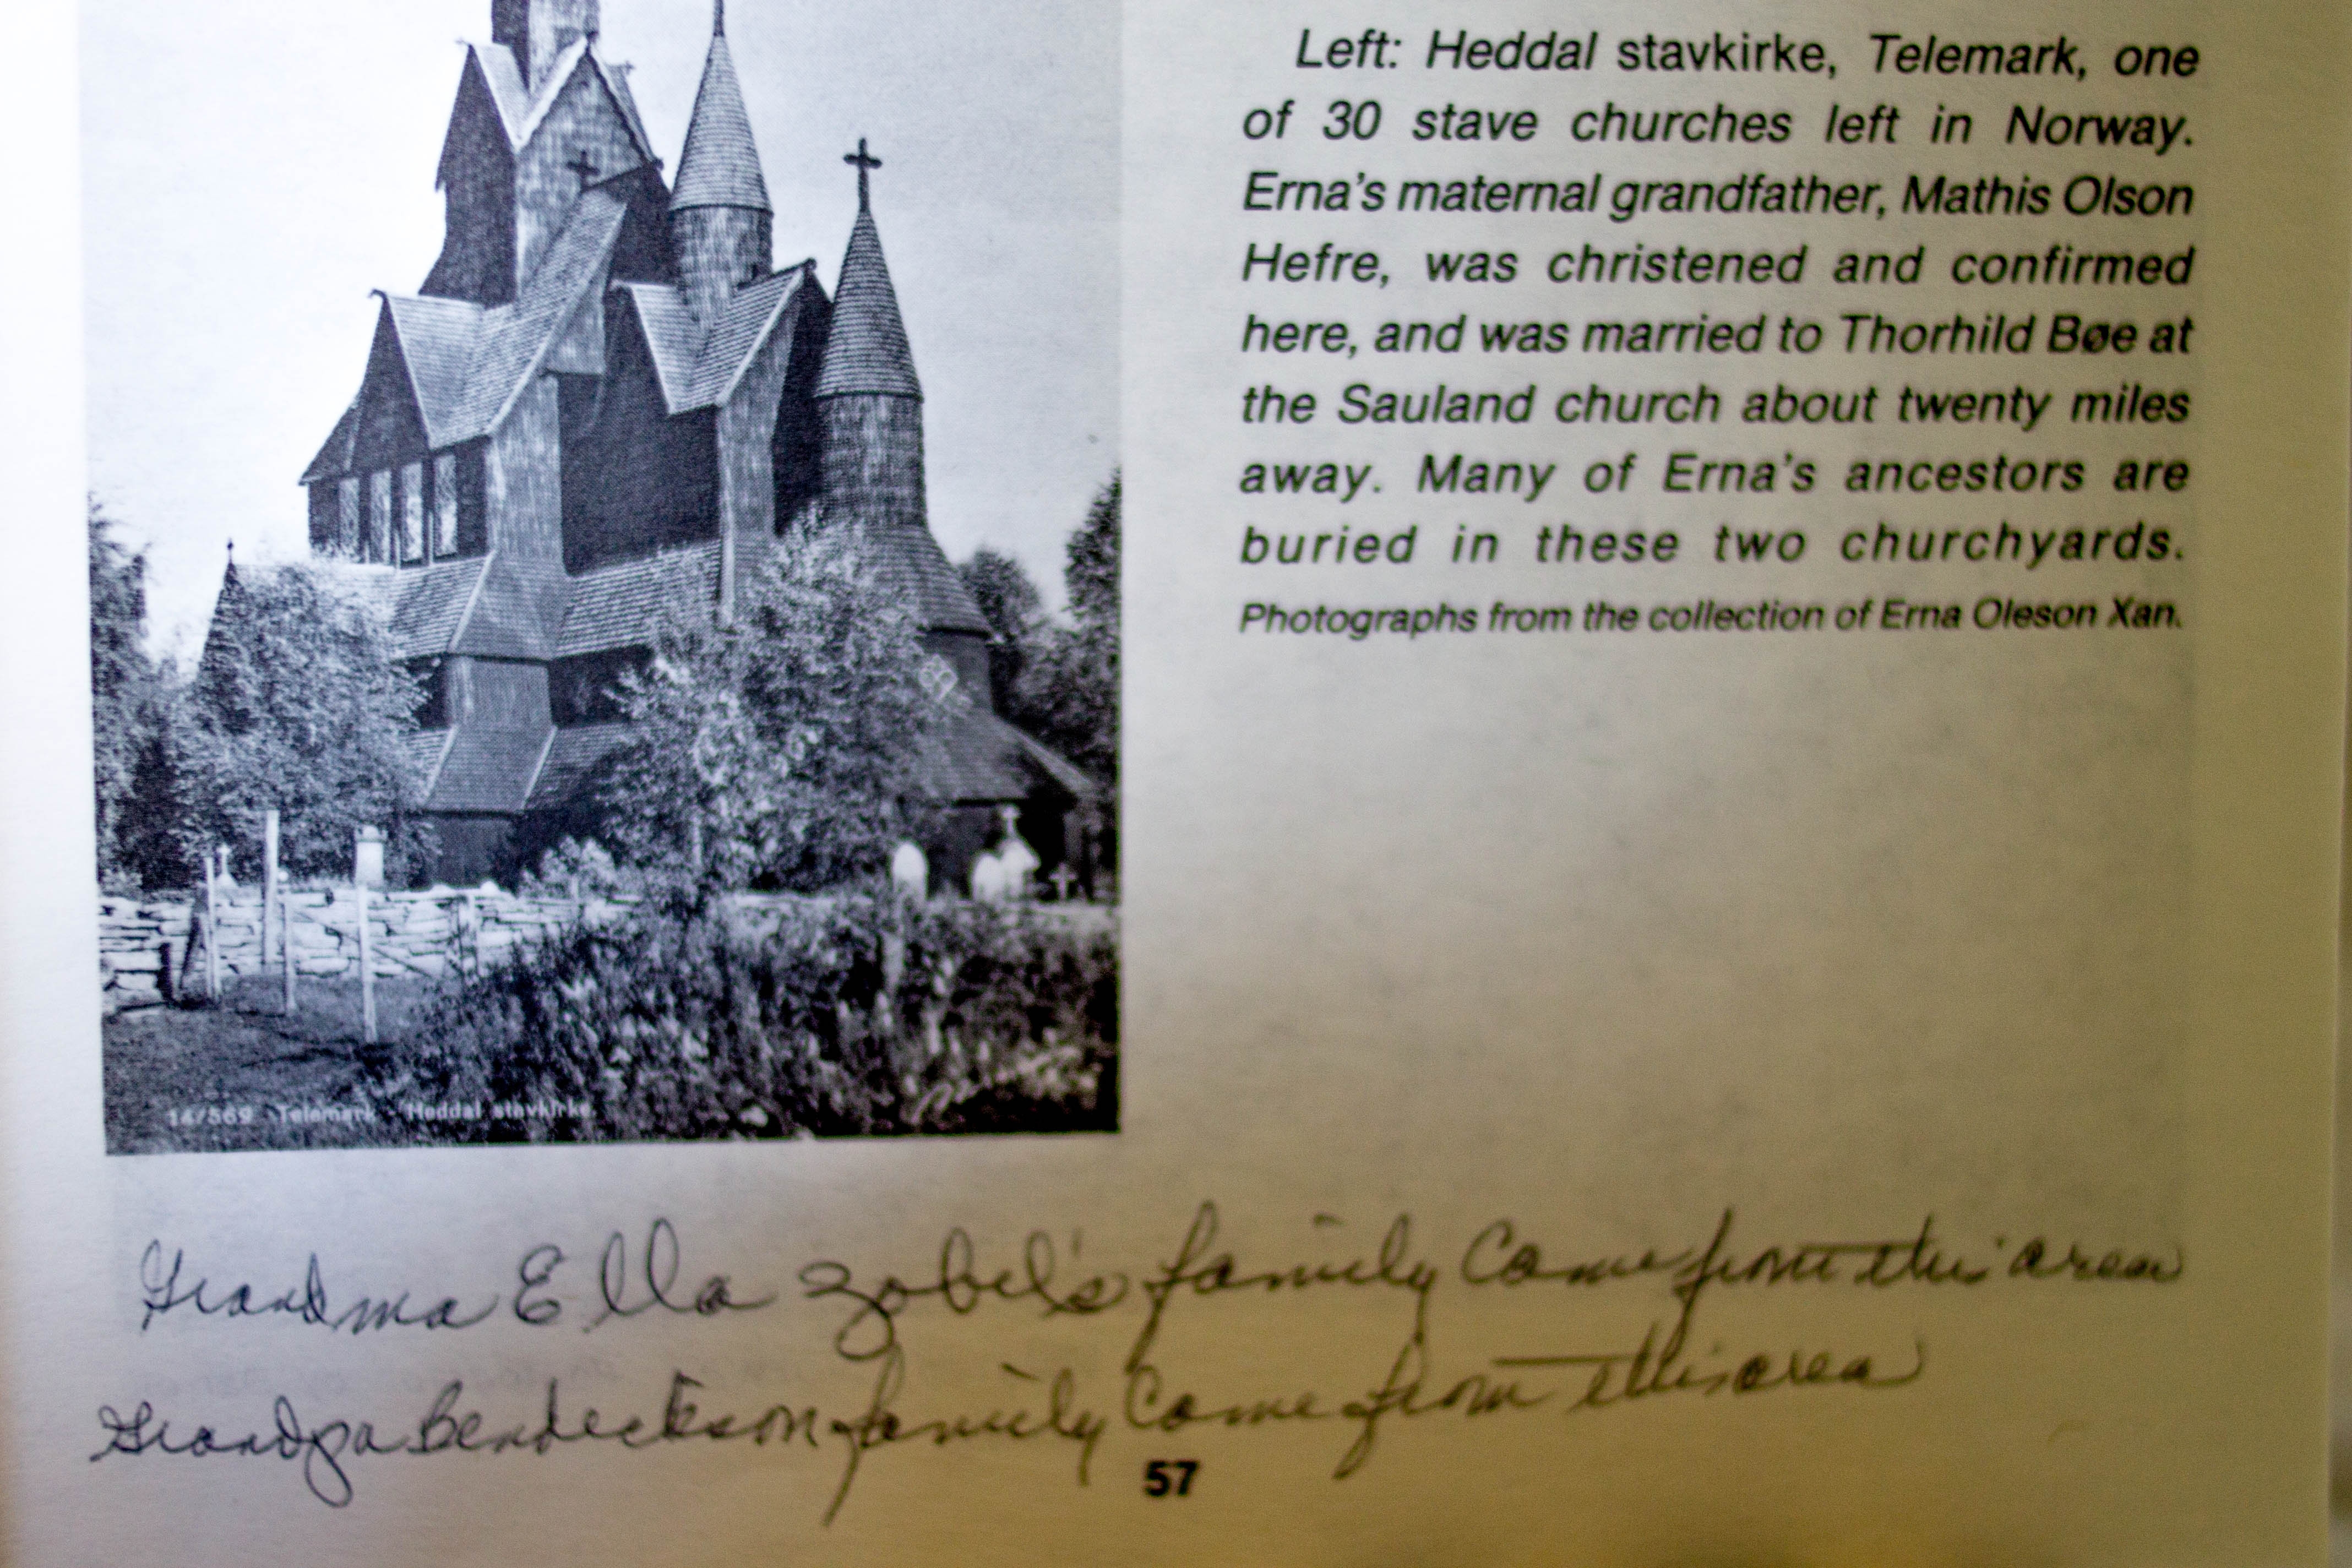 Left: Heddal stavkirke, Telemark, one
of 30 stave churches left in Norway.
Erna's maternal grandfather, Mathis Olson
Hefre, was christened and confirmed
here, and was married to Thorhild Bøe at
the Sauland church about twenty miles
away. Many of Erna's ancestors are
buried in these two churchyards.
Photographs from the collection of Erna Oleson Xan.
14/569 Telemark - Heddal stavkirke.
Grandma Ella Zobel's family Come from this area
Grandpa Bendeckson family Come from this area
57